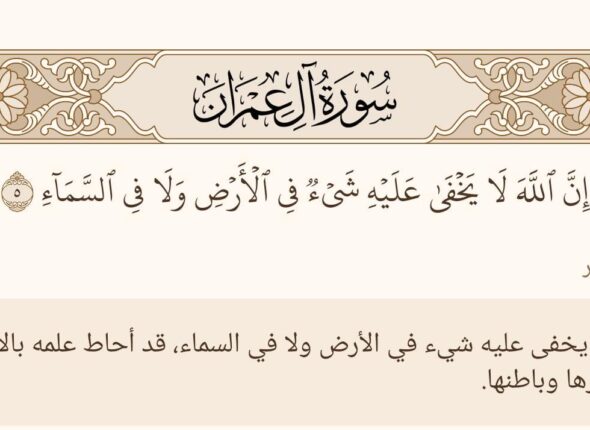 سُورَةُ آلِ عِمْرَانَ
إِنَّ ٱللَّهَ لَا يَخۡفَىٰ عَلَيۡهِ شَيۡءٞ فِي ٱلۡأَرۡضِ وَلَا فِي ٱلسَّمَآءِ ٥
يخفى عليه شيء في الأرض ولا في السماء، قد أحاط علمه
وباطنها.